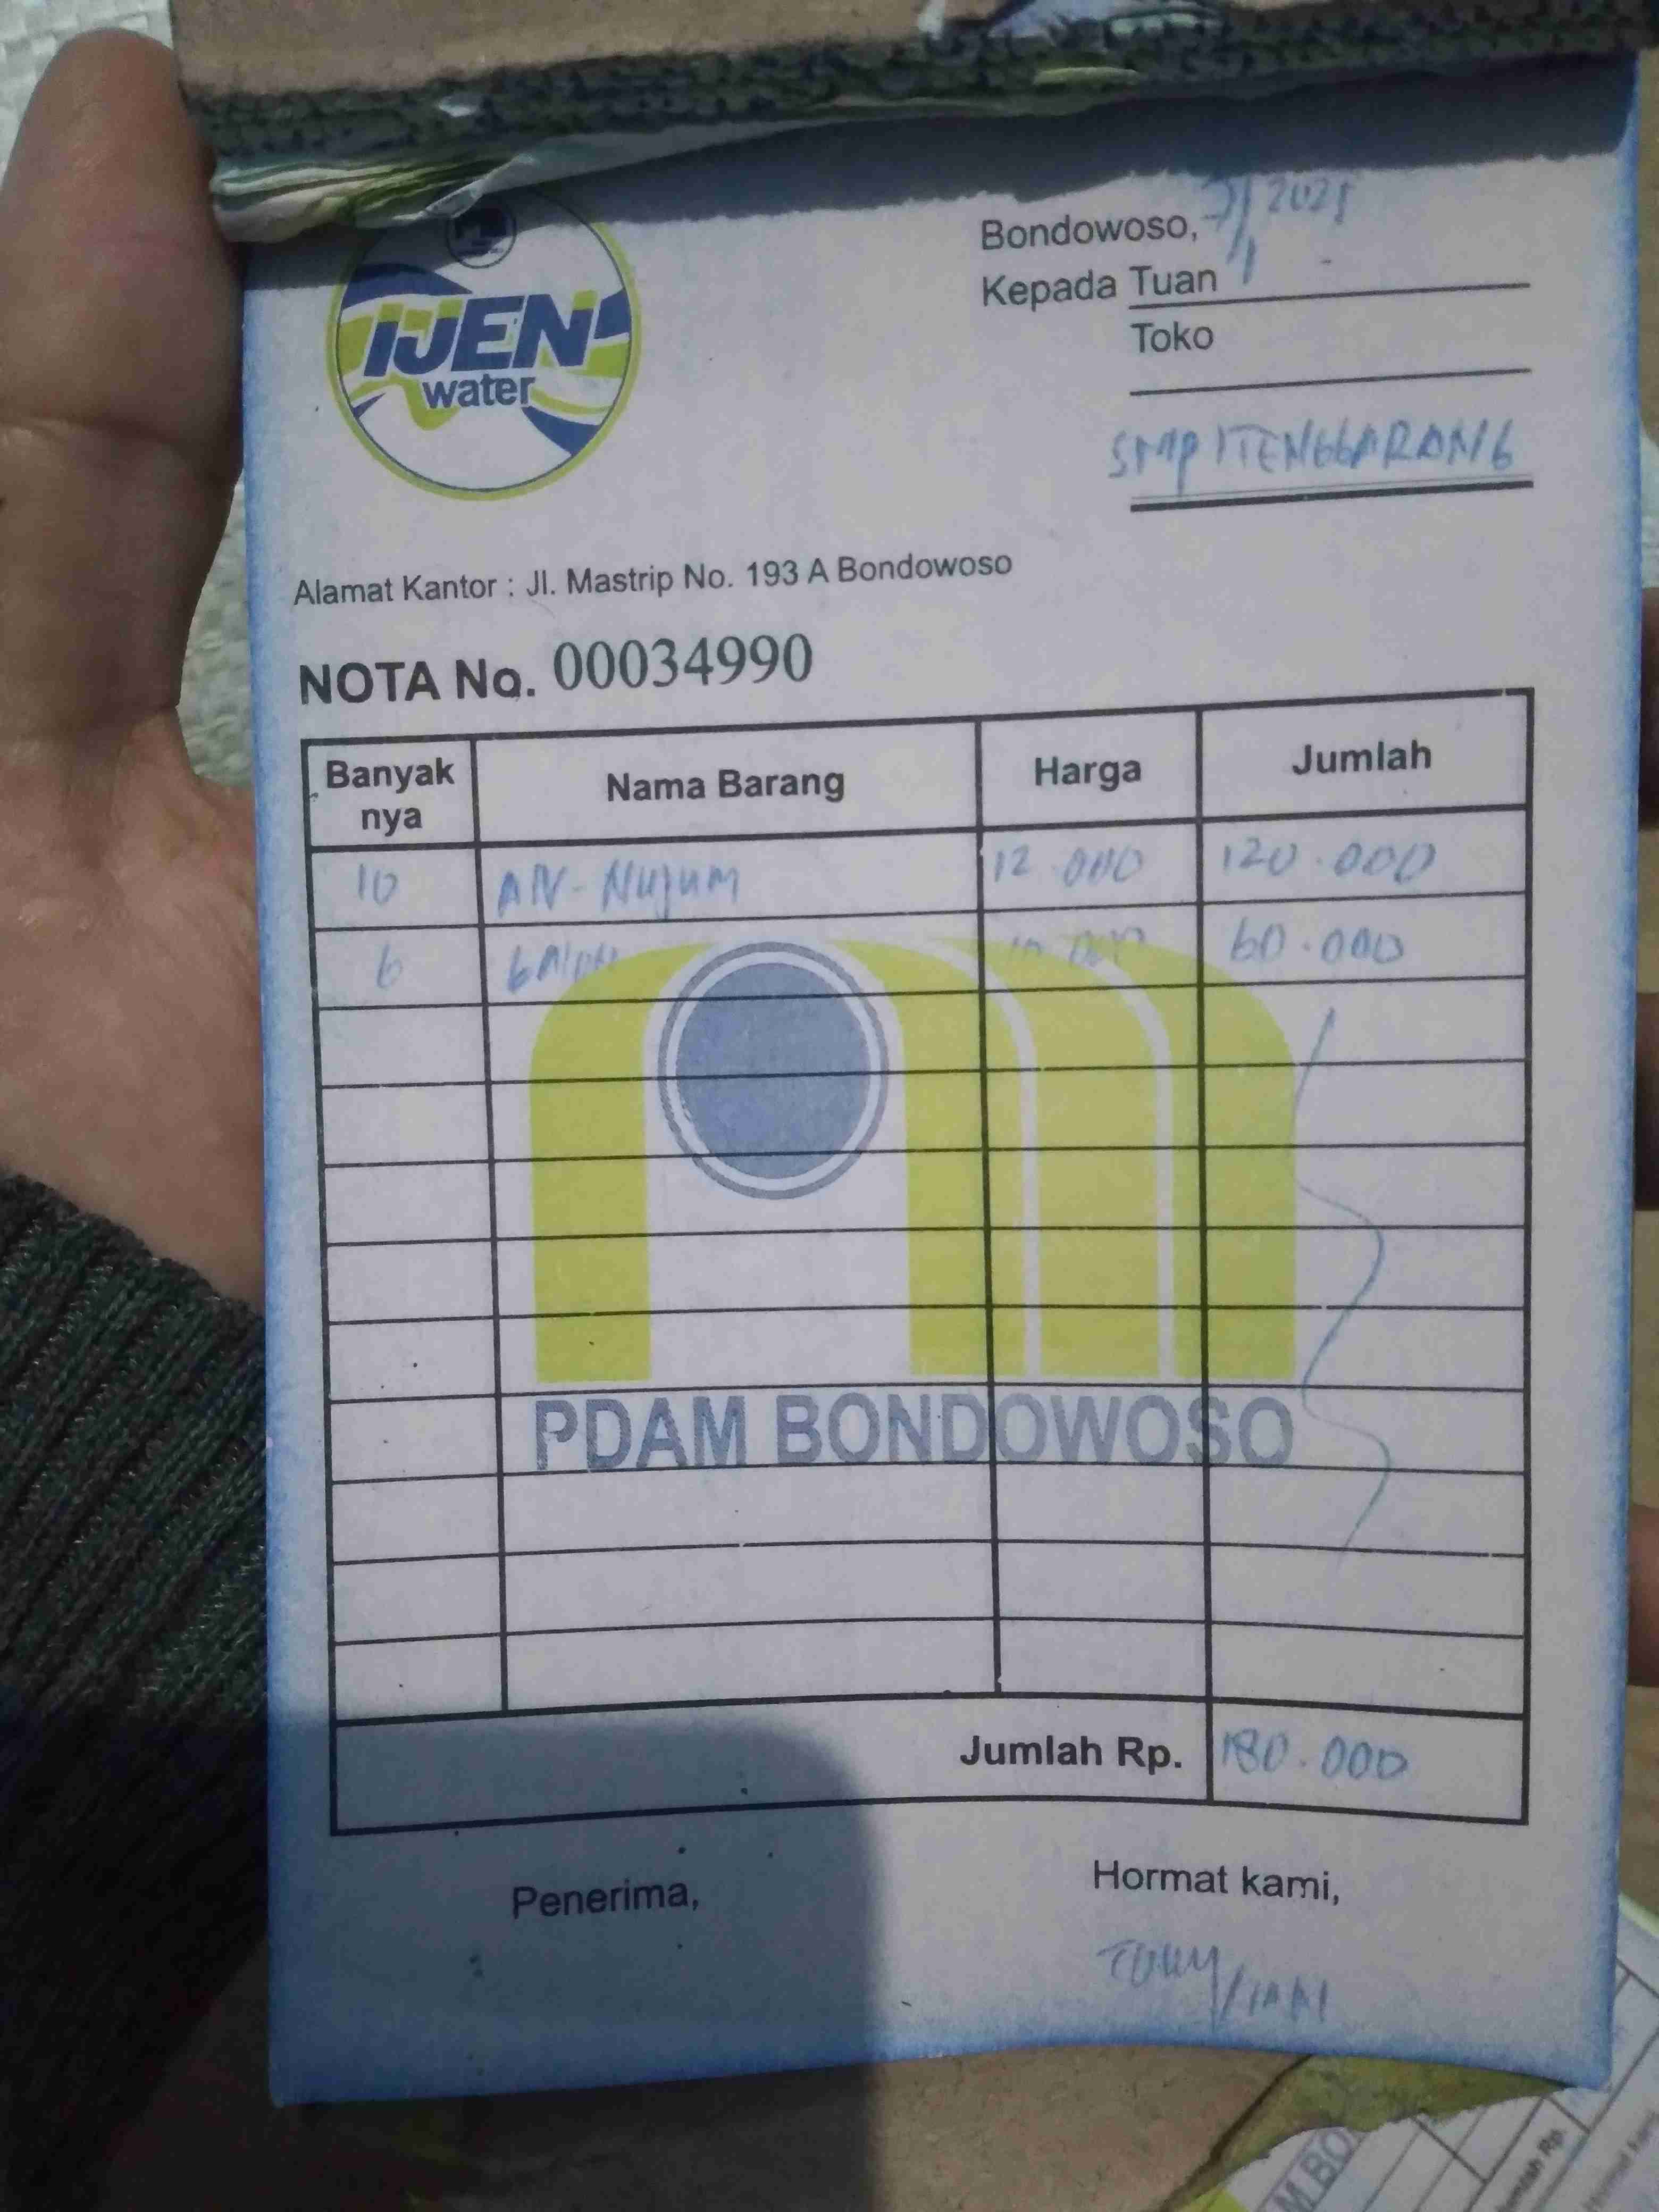 IJEN
water
Bondowoso, 7/1 2025
Kepada Tuan
Toko
SMP 1 TENGGARANG
Alamat Kantor : Jl. Mastrip No. 193 A Bondowoso
NOTA No. 00034990
Banyak nya Nama Barang Harga Jumlah
10 AN-Nujum 12.000 120.000
6 Galon 10.000 60.000
PDAM BONDOWOSO
Jumlah Rp. 180.000
Penerima,
Hormat kami,